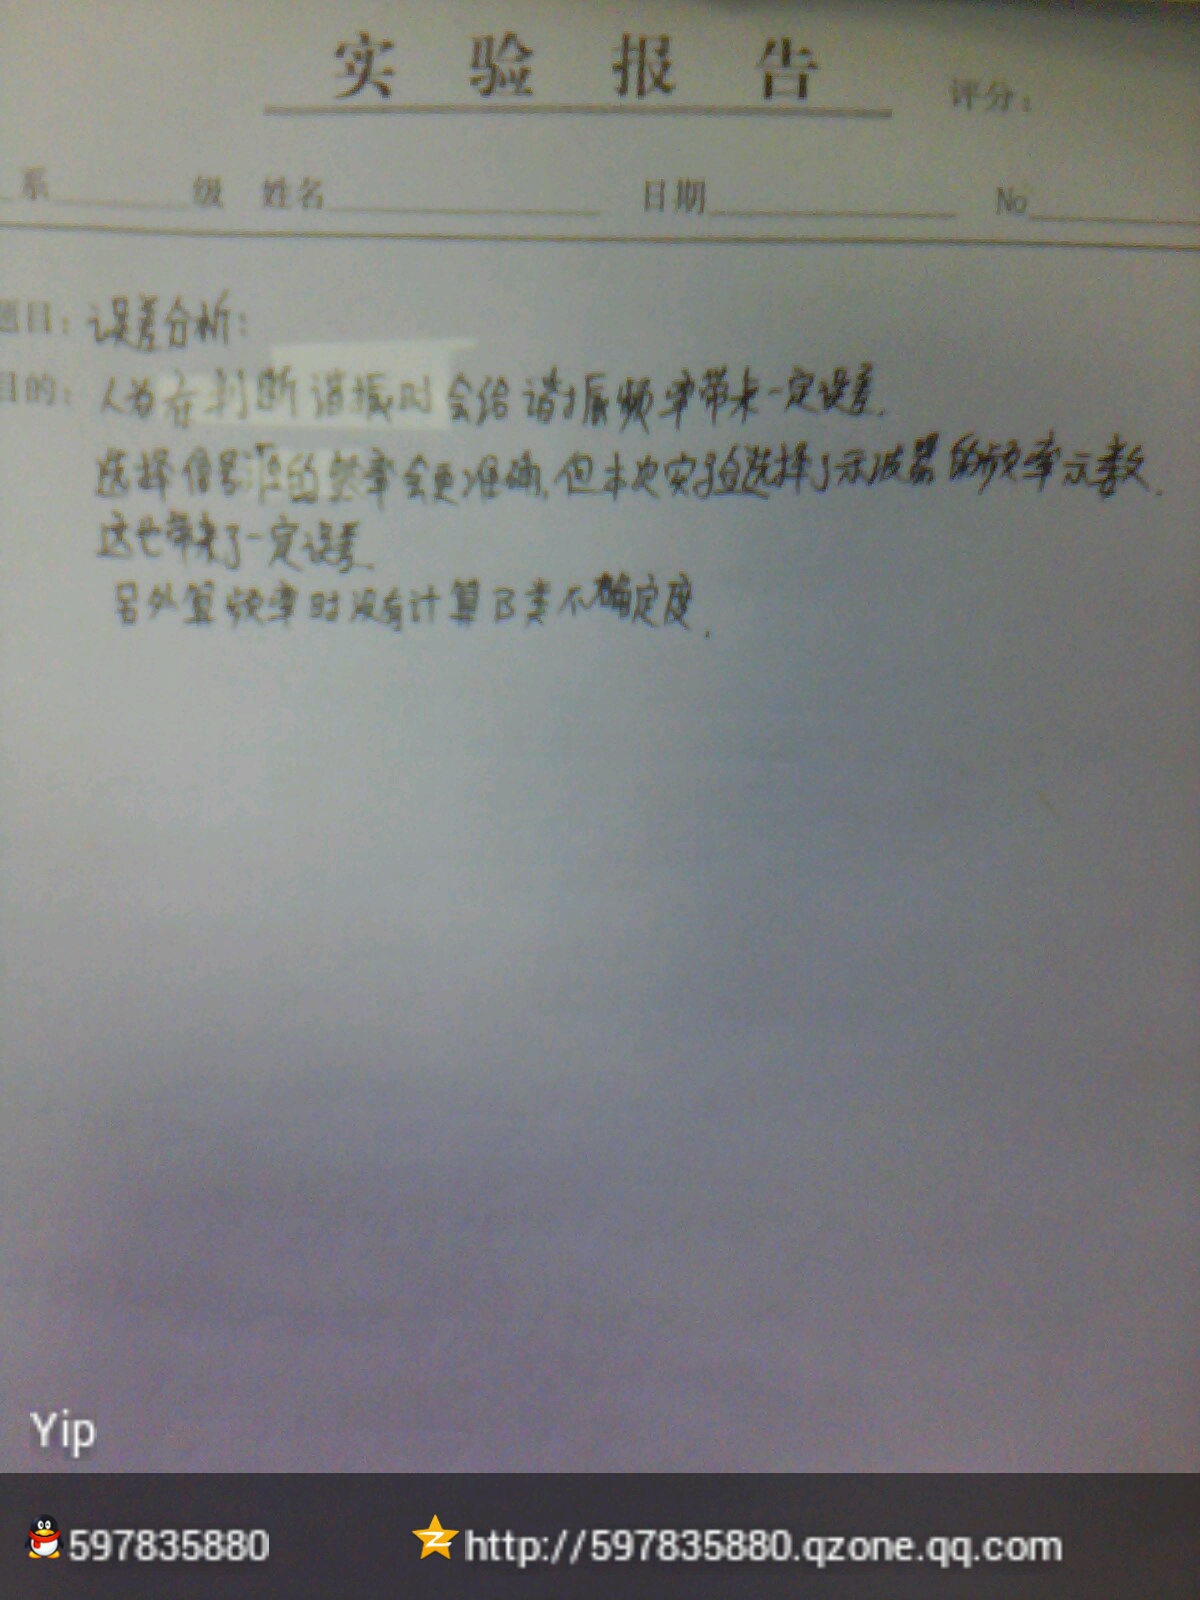 实验报告
评分：
系 级 姓名 日期 No
题目：误差分析：
目的：人为在判断谐振时会给谐振频率带来一定误差.
选择信号源的频率会更准确,但本次实验选择了示波器的频率示数.
这也带来了一定误差.
另外算频率时没有计算B类不确定度.
Yip
597835880
http://597835880.qzone.qq.com